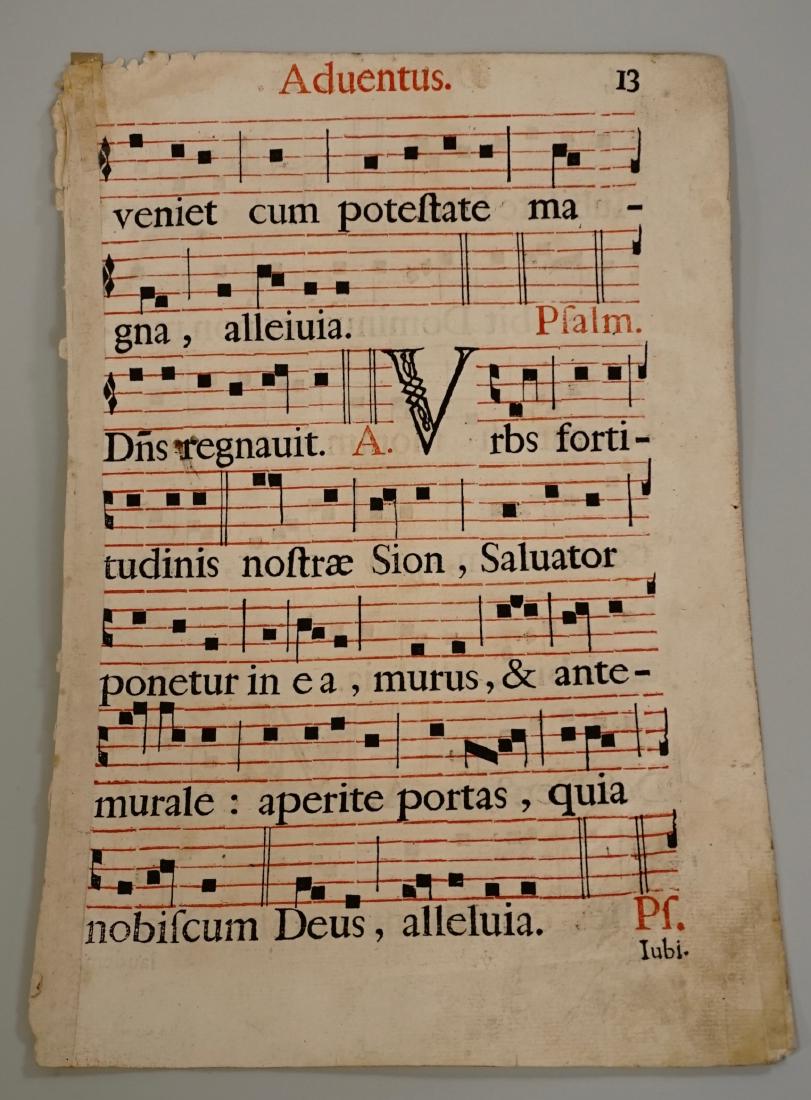 Aduentus. 13
veniet cum poteſtate ma-
gna, alleiuia. Pſalm.
Dn̄s regnauit. A. Vrbs forti-
tudinis noſtræ Sion, Saluator
ponetur in ea, murus, & ante-
murale: aperite portas, quia
nobiſcum Deus, alleluia. Pſ.
Iubi.